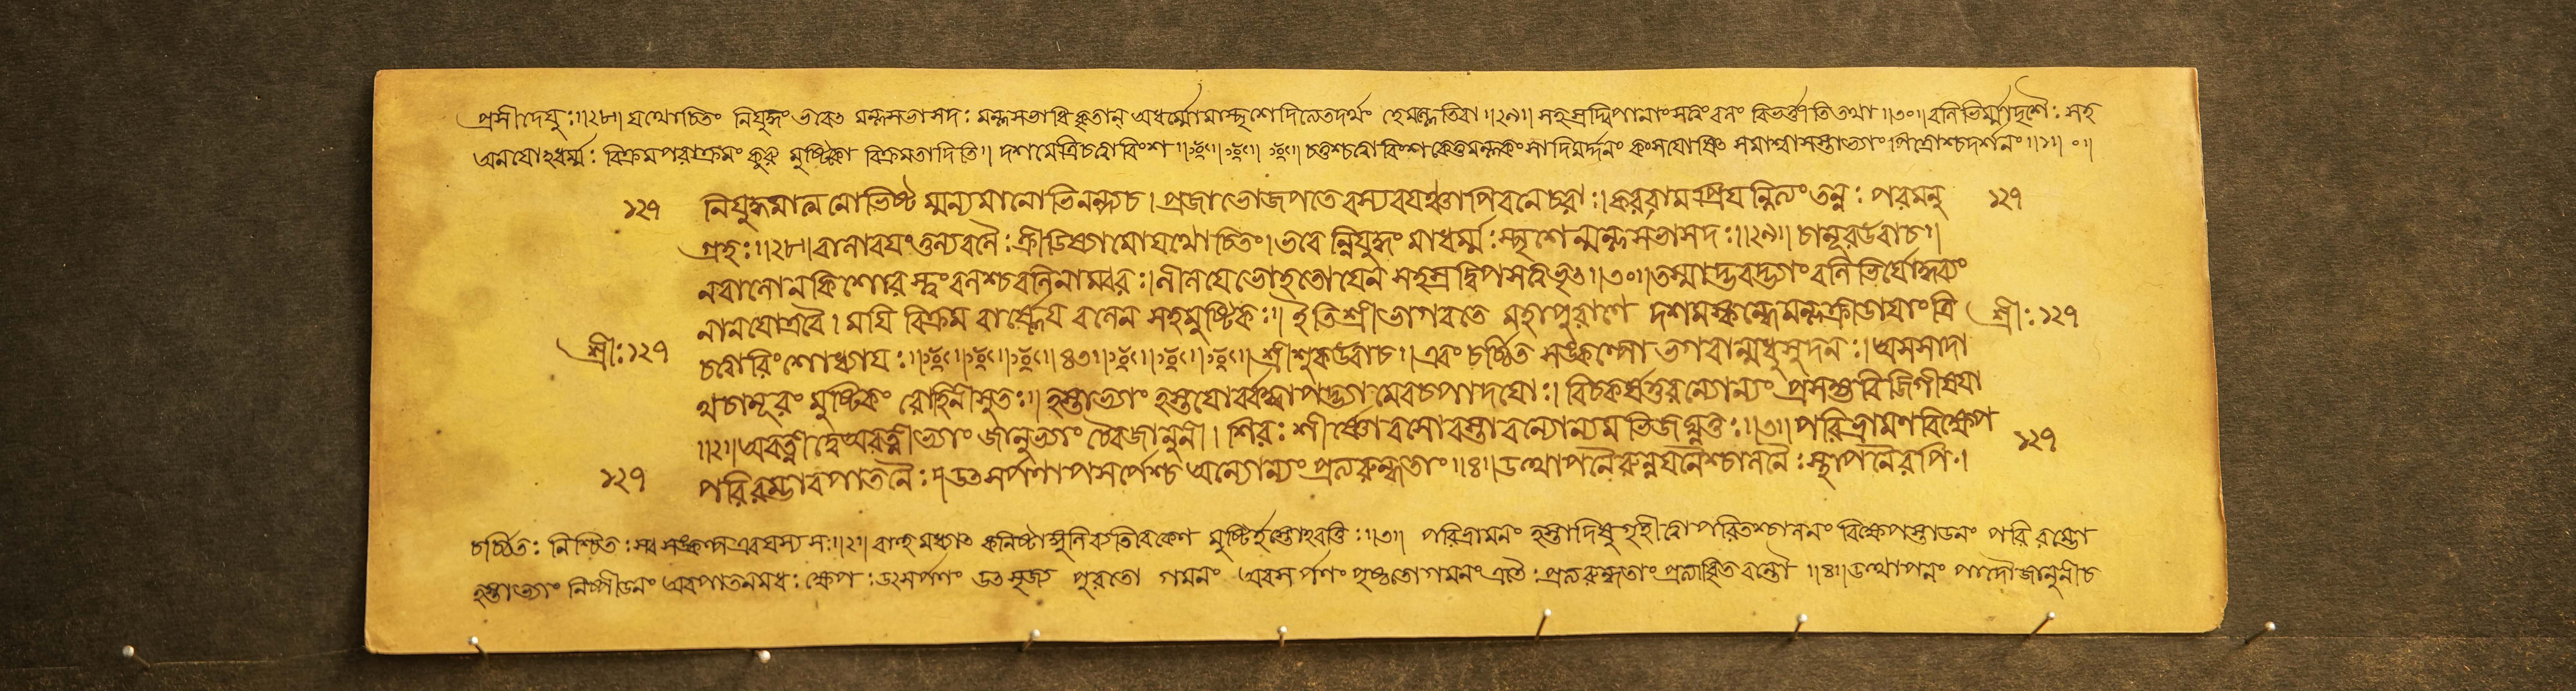 প্রসীদেযুঃ॥২৮॥ যথোচিতং নিযুদ্ধং ভবেত মল্লসভাসদঃ মল্লসভাধিকৃতান্ অধর্ম্মোমাস্পৃশেদিত্যেতদর্থং হেমল্লতিবা॥২৯॥ সহস্রদ্বিপানাংসত্বংবলং বিভর্ত্তীতিতথা॥৩০॥বলিভির্ম্মাদৃশৈঃ সহ
অনযোঽধর্ম্মঃ বিক্রমপরাক্রমং কুরু মুষ্টিকো বিক্রমতাদিতি॥ দশমেত্রিচত্বাবিংশ॥ চতুশ্চত্বাবিংশকেতুমল্লকংসাদিমর্দ্দনং কংসযোষিঞ্চ সমাশ্বাসস্তাভ্যাং পিত্রোশ্চদর্শনং॥১॥ ০॥
১২৭ নিযুদ্ধমাত্মনোভিষ্টম্মন্যমানোভিনন্দ্যচ।প্রজাভোজপতেবস্যবযঞ্চাপিবনেচরাঃ।করবামপ্রিযন্নিত্যংতন্নঃ পরমনু ১২৭
গ্রহঃ॥২৮॥বালাবযংতুল্যবলৈঃক্রীডিষ্যামোযথোচিতং।ভবেন্নিযুদ্ধংমাধর্ম্মঃস্পৃশেন্মল্লসভাসদঃ॥২৯॥চানূরউবাচ॥
নবালোনকিশোরস্ত্বংবলশ্চবলিনাম্বরঃ।লীলযেভোহতোযেন সহস্রদ্বিপসত্বভৃত॥৩০॥তস্মাদ্ভবদ্ভ্যাংবলিভির্যোদ্ধব্যং
নানযোত্রবৈ। মযি বিক্রম বার্ষ্ণেয বলেন সহমুষ্টিকঃ॥ ইতিশ্রীভাগবতে মহাপুরাণে দশমস্কন্ধেমল্লক্রীডাযাংত্রি শ্রীঃ১২৭
শ্রীঃ১২৭ চত্বারিংশোধ্যাযঃ॥৪৩॥ শ্রীশুকউবাচ॥এবংচর্চ্চিত সঙ্কল্পো ভগবান্মধুসূদনঃ।অসসাদা
থচানূরং মুষ্টিকং রোহিনীসুতঃ॥ হস্তাভ্যাং হস্তযোবর্বদ্ধাপদ্ভ্যামেবচপাদযোঃ। বিচকর্ষতুরন্যোন্যং প্রসহ্যবিজিগীষযা
॥২॥অরত্নীদ্বেঅরত্নীভ্যাং জানুভ্যাং চৈবজানুনী। শিরঃ শীর্ষ্ণোবসোবস্তাবন্যোন্যমভিজঘ্নতুঃ॥৩॥পরিভ্রামণবিক্ষেপ ১২৭
১২৭ পরিরম্ভাবপাতনৈঃ।উতসর্পণাপসর্পেশ্চঅন্যোন্যংপ্রত্যরুন্ধতাং॥৪॥উত্থাপনৈরুন্নযনৈশ্চালনৈঃস্থাপনৈরপি।
চর্চ্চিতঃ নিশ্চিতঃ সঙ্কল্পএবযস্য সঃ॥২॥ বাহুমধ্যাত কনিষ্টাঙ্গুলিব্যতিরেকেণ মুষ্টির্হস্তোঽরত্নিঃ॥৩॥ পরিভ্রামনং হস্তাদিষুগৃহীত্বাপরিতশ্চালনং বিক্ষেপস্তাডনং পরি রম্ভো
হস্তাভ্যাং নিষ্পীডনং অবপাতনমধঃক্ষেপঃউতসর্পণং উতসৃজ্য পুরতো গমনং অবসর্পণং পৃষ্ঠতোগমনংএতৈঃপ্রত্যরুন্ধতাংপ্রত্যাবৃতবন্তৌ॥৪॥উত্থাপনং পাদৌজানুনীচ